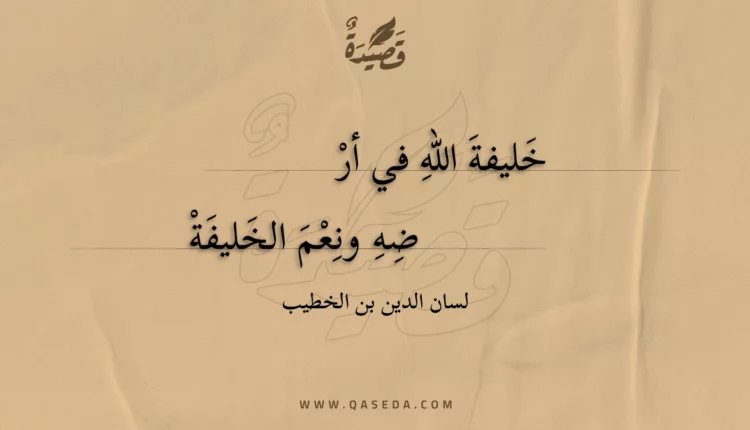 قَصِيدَةٌ
خَليفةَ اللهِ في أرْ
ضِهِ ونِعْمَ الخَليفَةْ
لسان الدين بن الخطيب
WWW.QASEDA.COM